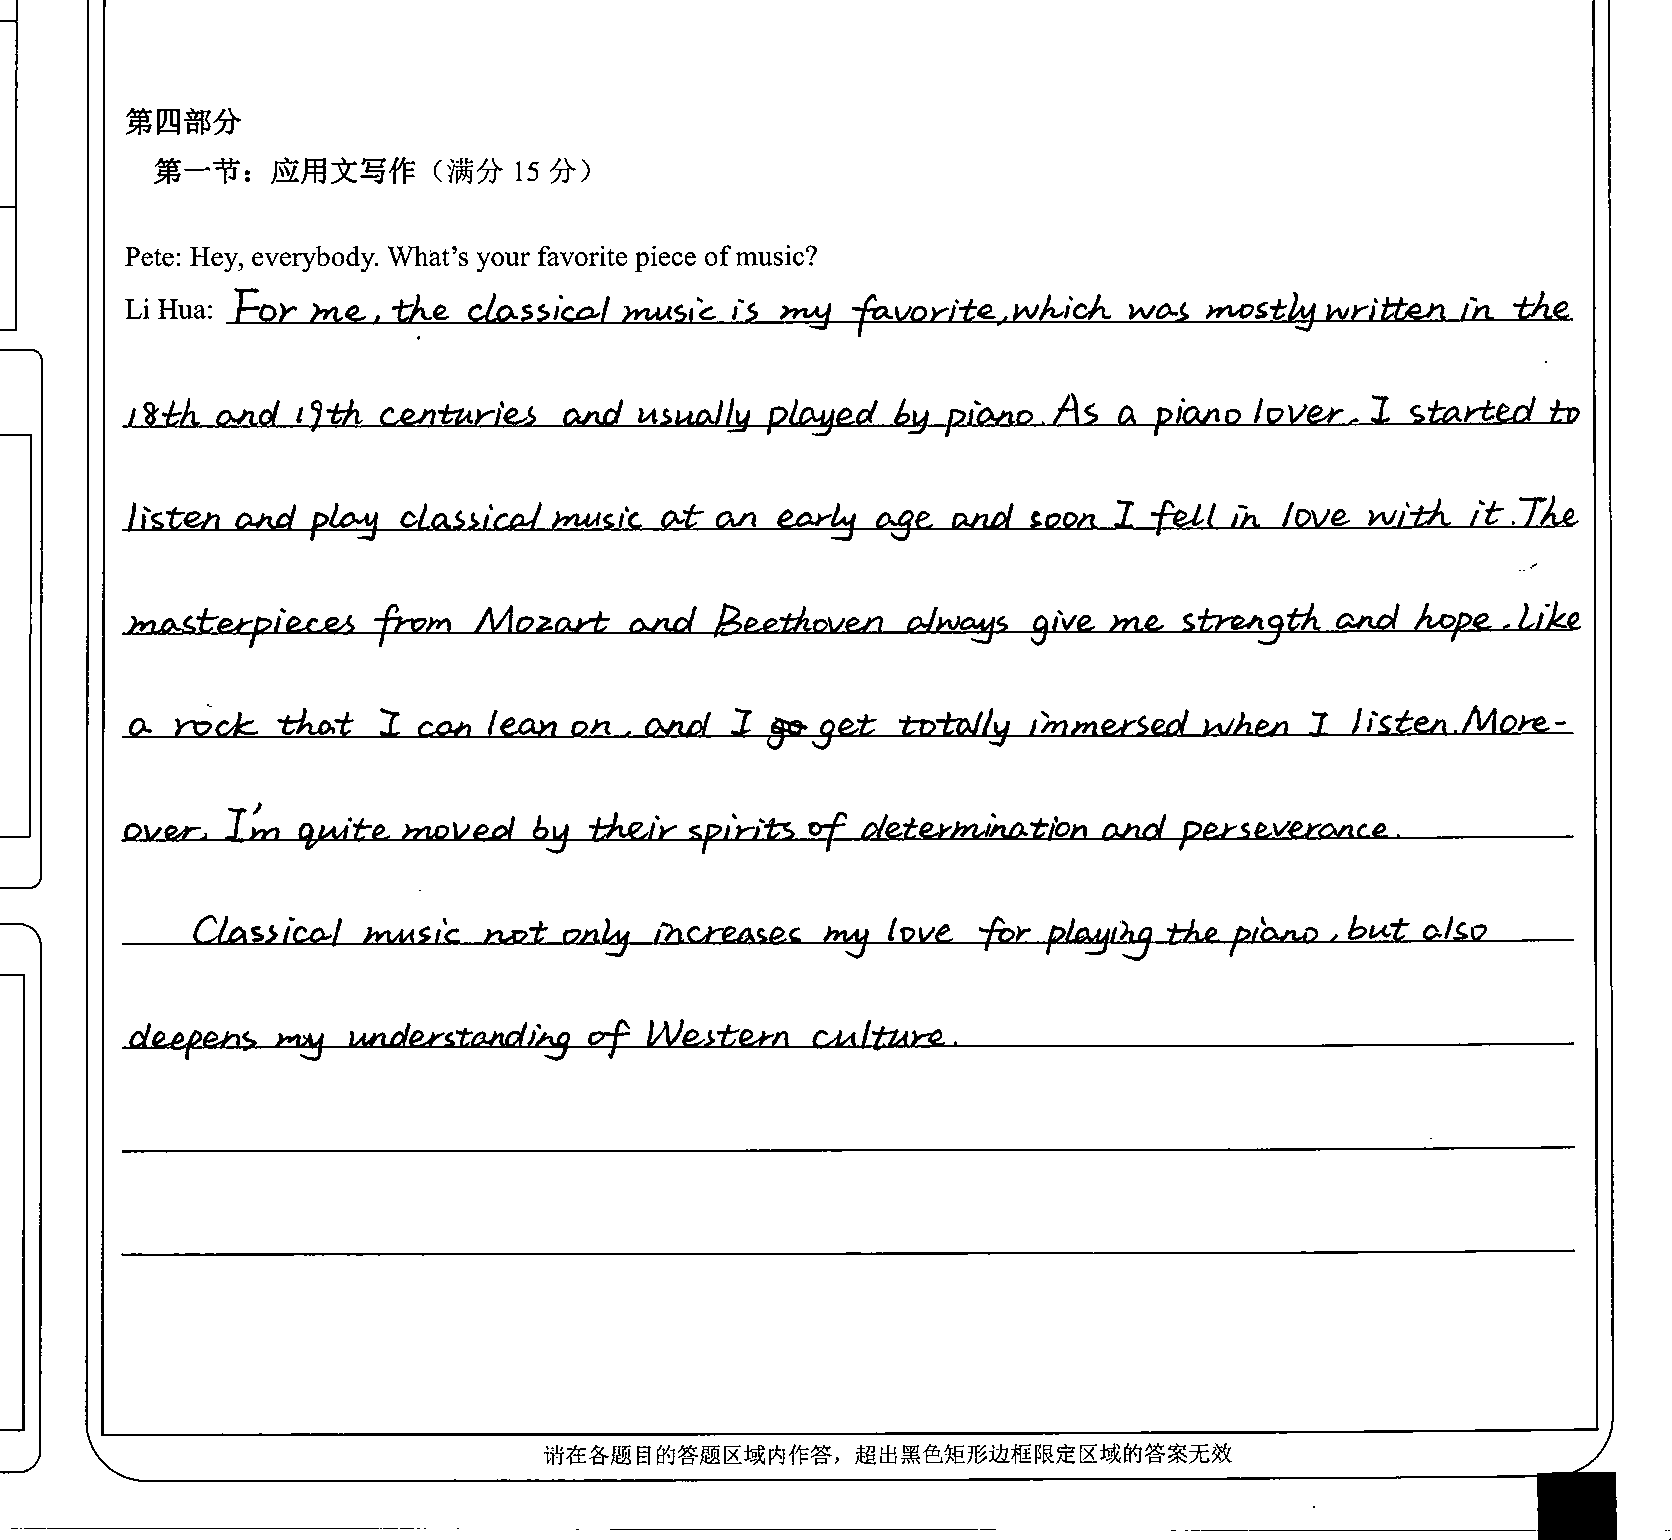 第四部分
第一节：应用文写作（满分 15 分）
Pete: Hey, everybody. What's your favorite piece of music?
Li Hua: For me, the classical music is my favorite, which was mostly written in the
18th and 19th centuries and usually played by piano. As a piano lover, I started to
listen and play classical music at an early age and soon I fell in love with it. The
masterpieces from Mozart and Beethoven always give me strength and hope. Like
a rock that I can lean on, and I get totally immersed when I listen. More-
over, I'm quite moved by their spirits of determination and perseverance.
Classical music not only increases my love for playing the piano, but also
deepens my understanding of Western culture.
请在各题目的答题区域内作答，超出黑色矩形边框限定区域的答案无效